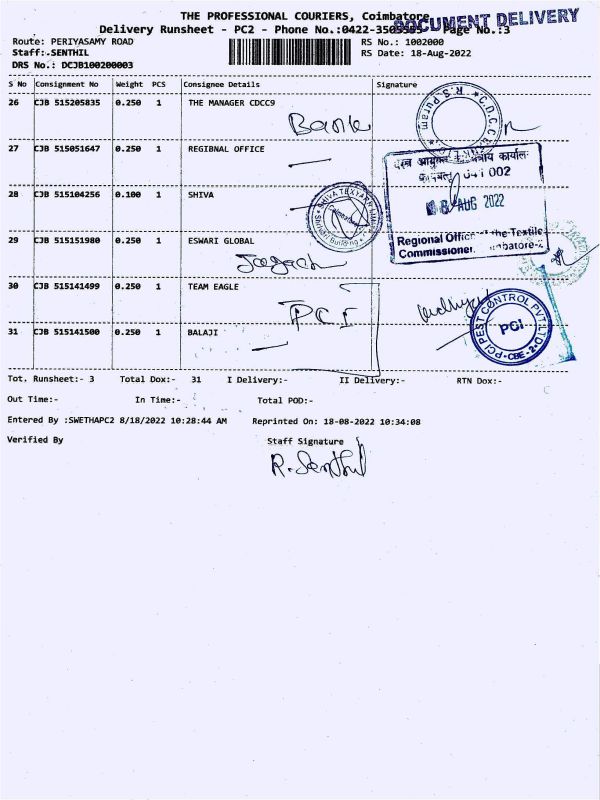 THE PROFESSIONAL COURIERS, Coimbatore
DOCUMENT DELIVERY
Delivery Runsheet - PC2 - Phone No.:0422-3505555 Page No.:3
Route: PERIYASAMY ROAD RS No.: 1002000
Staff:.SENTHIL RS Date: 18-Aug-2022
DRS No.: DCJB100200003
S No Consignment No Weight PCS Consignee Details Signature
26 CJB 515205835 0.250 1 THE MANAGER CDCC9
Bank
R.S.Puram
27 CJB 515051647 0.250 1 REGIBNAL OFFICE
कार्यालय
641 002
28 CJB 515104256 0.100 1 SHIVA
18 AUG 2022
SHIVA TEXYARN
29 CJB 515151980 0.250 1 ESWARI GLOBAL
Regional Office of the Textile
Commissioner, Coimbatore-2
30 CJB 515141499 0.250 1 TEAM EAGLE
PCI
PCI PEST CONTROL PVT LTD
PCI
CBE-2
31 CJB 515141500 0.250 1 BALAJI
Tot. Runsheet:- 3 Total Dox:- 31 I Delivery:- II Delivery:- RTN Dox:-
Out Time:- In Time:- Total POD:-
Entered By :SWETHAPC2 8/18/2022 10:28:44 AM Reprinted On: 18-08-2022 10:34:08
Verified By Staff Signature
R. Senthil